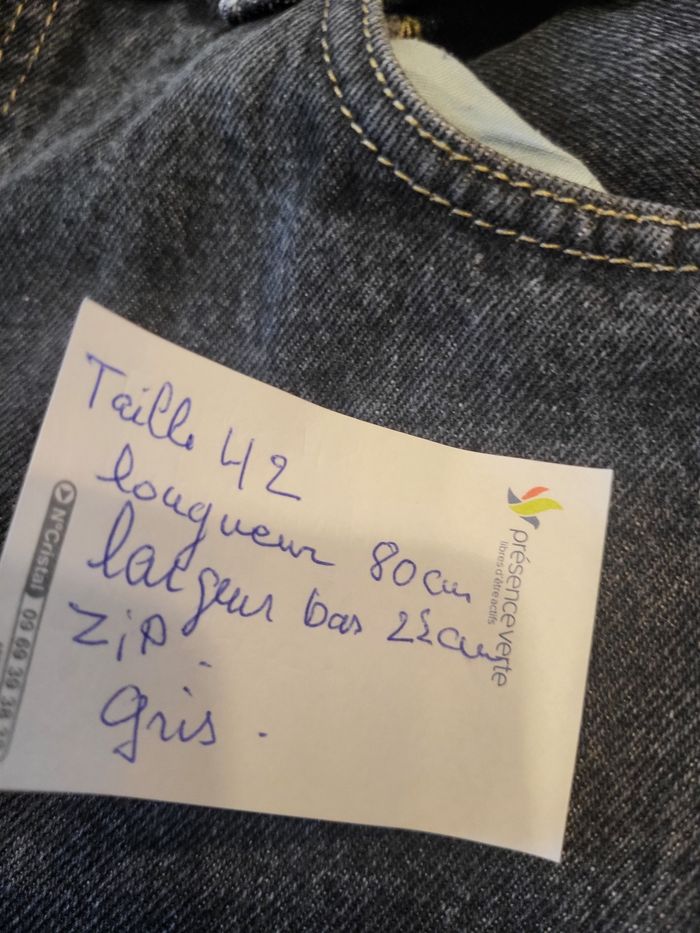 Taille 42
longueur 80 cm
largeur bas 22 cm
Zip.
gris.
présence verte
libres d'être actifs
N°Cristal 09 69 39 38